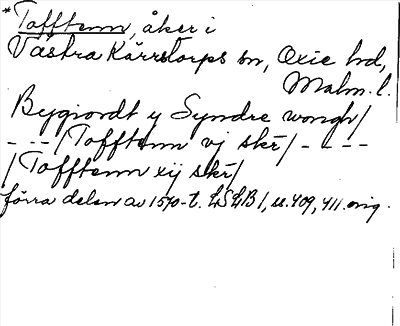 *Tofftenn, åker i
Västra Kärrstorps sn, Oxie hd,
Malm. l.
Bygiordt y Syndre wongh/
- - - /Tofftenn vj skr/ - - - -
/Tofftenn xij skr/
förra delen av 1570-t. LSLB 1, s. 409, 411. orig.